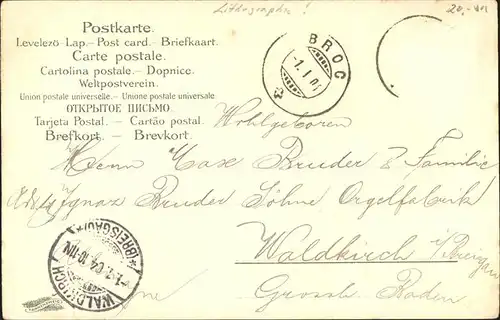 Lithographie!
20.-
Postkarte.
Levelező-Lap.– Post card.– Briefkaart.
Carte postale.
Cartolina postale.– Dopnice.
Weltpostverein.
Union postale universelle.– Unione postale universale
ОТКРЫТОЕ ПИСЬМО.
Tarjeta Postal.– Cartão postal.
Brefkort.– Brevkort.
BROC
Wohlgeboren
Herrn Max Bruder & Familie
Ignaz Bruder Söhne Orgelfabrik
Waldkirch i/Breisgau
Grossh. Baden
WALDKIRCH
(BREISGAU)